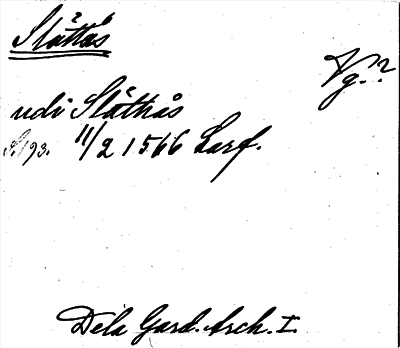 Slåttås
Vg.??
udi Slåttås
S. 193. 11/2 1566 Larf.
Dela Gard. Arch. I.